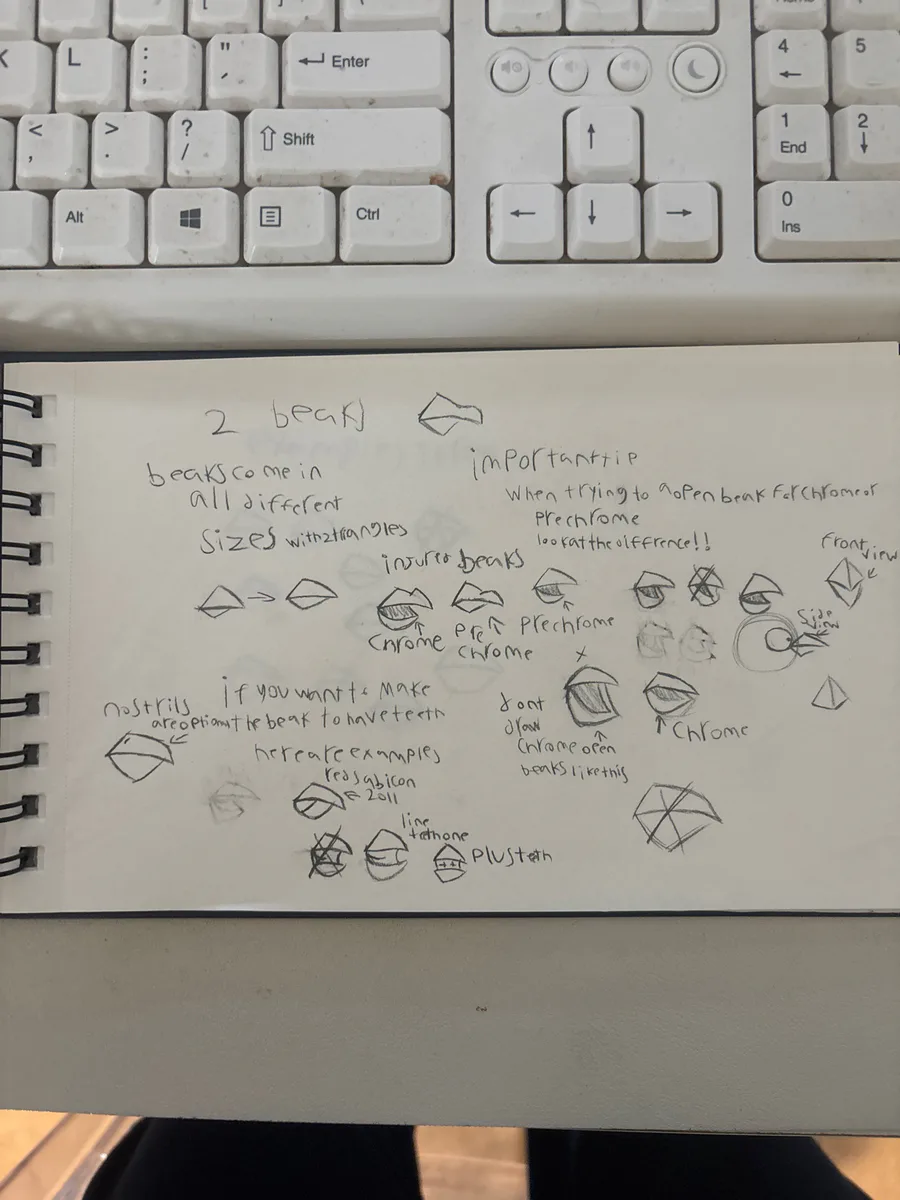 L
:
;
"
'
Enter
4
5
<
,
>
.
?
/
Shift
1
End
2
Alt
Ctrl
0
Ins
2 beaks
beaks come in
all different
sizes with 2 triangles
importanttip
when trying to aopen beak for chrome or
prechrome
look at the difference!!
front
view
side
view
beaks
chrome
pre
chrome
prechrome
x
nostrils
are option
if you want to make
the beak to have teeth
here are examples
2011
line
plus teth
dont
draw
chrome open
beaks like this
chrome